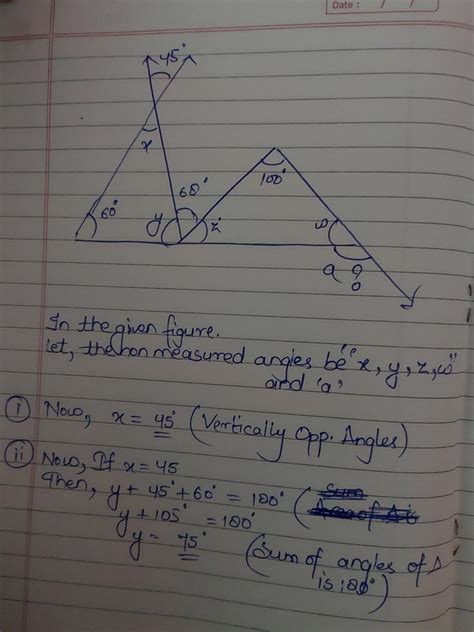 Date : / /
45°
x
60°
60°
y
z
100°
w
a ?
In the given figure.
Let, the non measured angles be "x, y, z, w"
and 'a'
i Now, x = 45° (Vertically Opp. Angles)
ii Now, If x = 45
Then, y + 45° + 60° = 180° (
y + 105° = 180°
y = 75° (Sum of angles of Δ
is 180°)